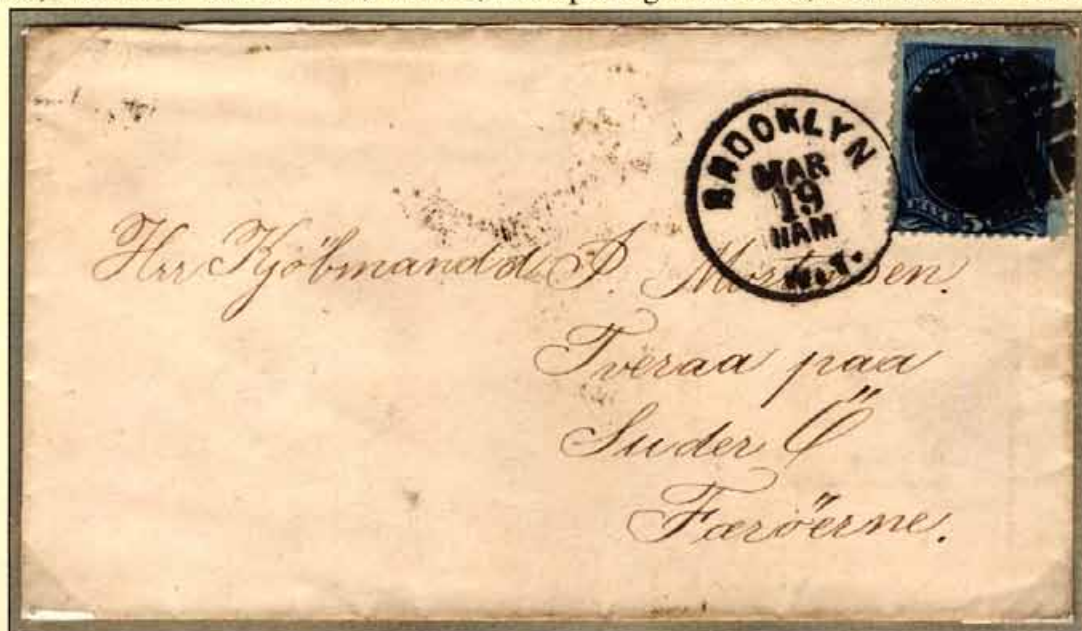 BROOKLYN
MAR
19
11AM
N.Y.
5
Hrr Kjöbmand P. Mortensen.
Tveraa paa
Suder Ö
Færöerne.